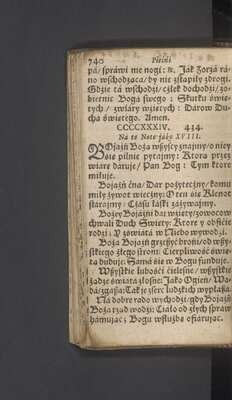 740 Pieśni
pá/ spráwi me nogi: ꝛc. Ják zorzá rá-
no wschodzącá/ by nie zstąpiły z drogi.
Gdzie tá wschodzi/ człek dochodzi/ zo-
biernie Bogá swego : Skutku świę-
tych / zwiáry wziętych : Dárow Du-
chá świętego. Amen.
CCCCXXXIV. 434.
Ná tę Notę jáko XVIII.
BOjáźń Bożá wßyscy znájmy/ o niey
się pilnie pytájmy: Ktora przez
wiárę dáruje/ Pan Bog : Tym ktore
miłuje.
Bojáźń czná/ Dar pożyteczny/ komu
miły żywot wieczny: O ten się Klenot
stárájmy / Czásu łáski záżywájmy.
Bożey Bojáźni dar wzięty/ zowocow
chwali Duch Święty: Ktore y obficie
rodzi: Y zowiátá w Niebo wywodzi.
Bojá Bojáźń grzeßyć broni/ od wßy-
stkiego złego stroni: Cierpliwość świę-
tá buduje: Sámá się w Bogu funduje.
Wßystkie lubości cielesne/ wßystkie
żądze świátá złosne: Jáko Ogień/ Wo-
dá/ zgaßa: Ták je z serc ludzkich wypłaßa.
Ná dobre rádo wychodzi: gdy Bojáźń
Bożá rząd wodzi: Ciáło od złych spraw
hámując: Bogu w służbę ofiárując.